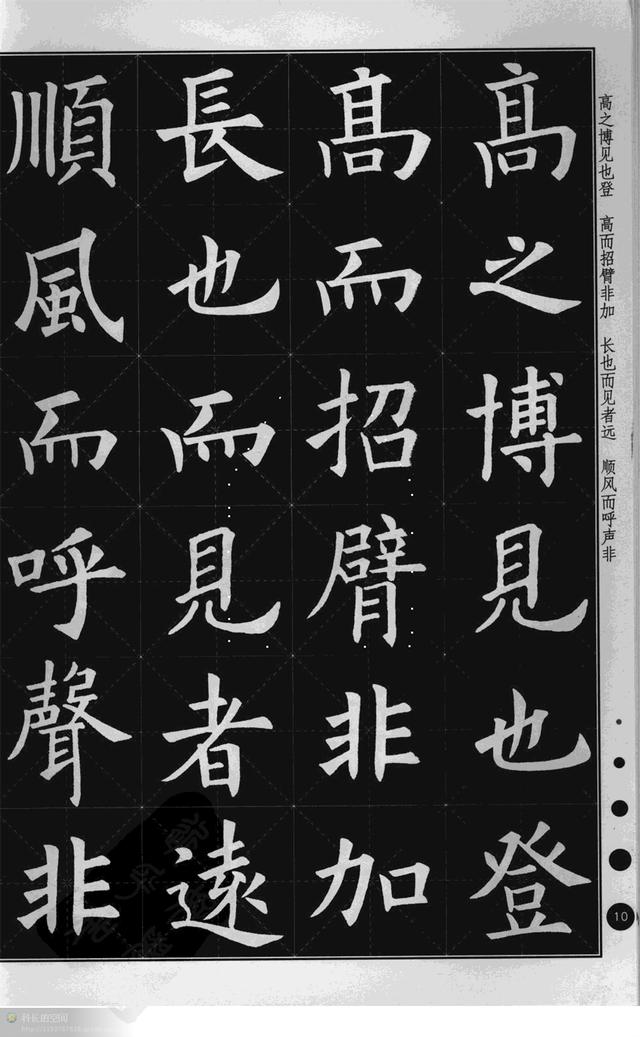 高之博見也登
高而招臂非加
長也而見者遠
順風而呼聲非
高之博见也登 高而招臂非加 长也而见者远 顺风而呼声非
10
科长的空间